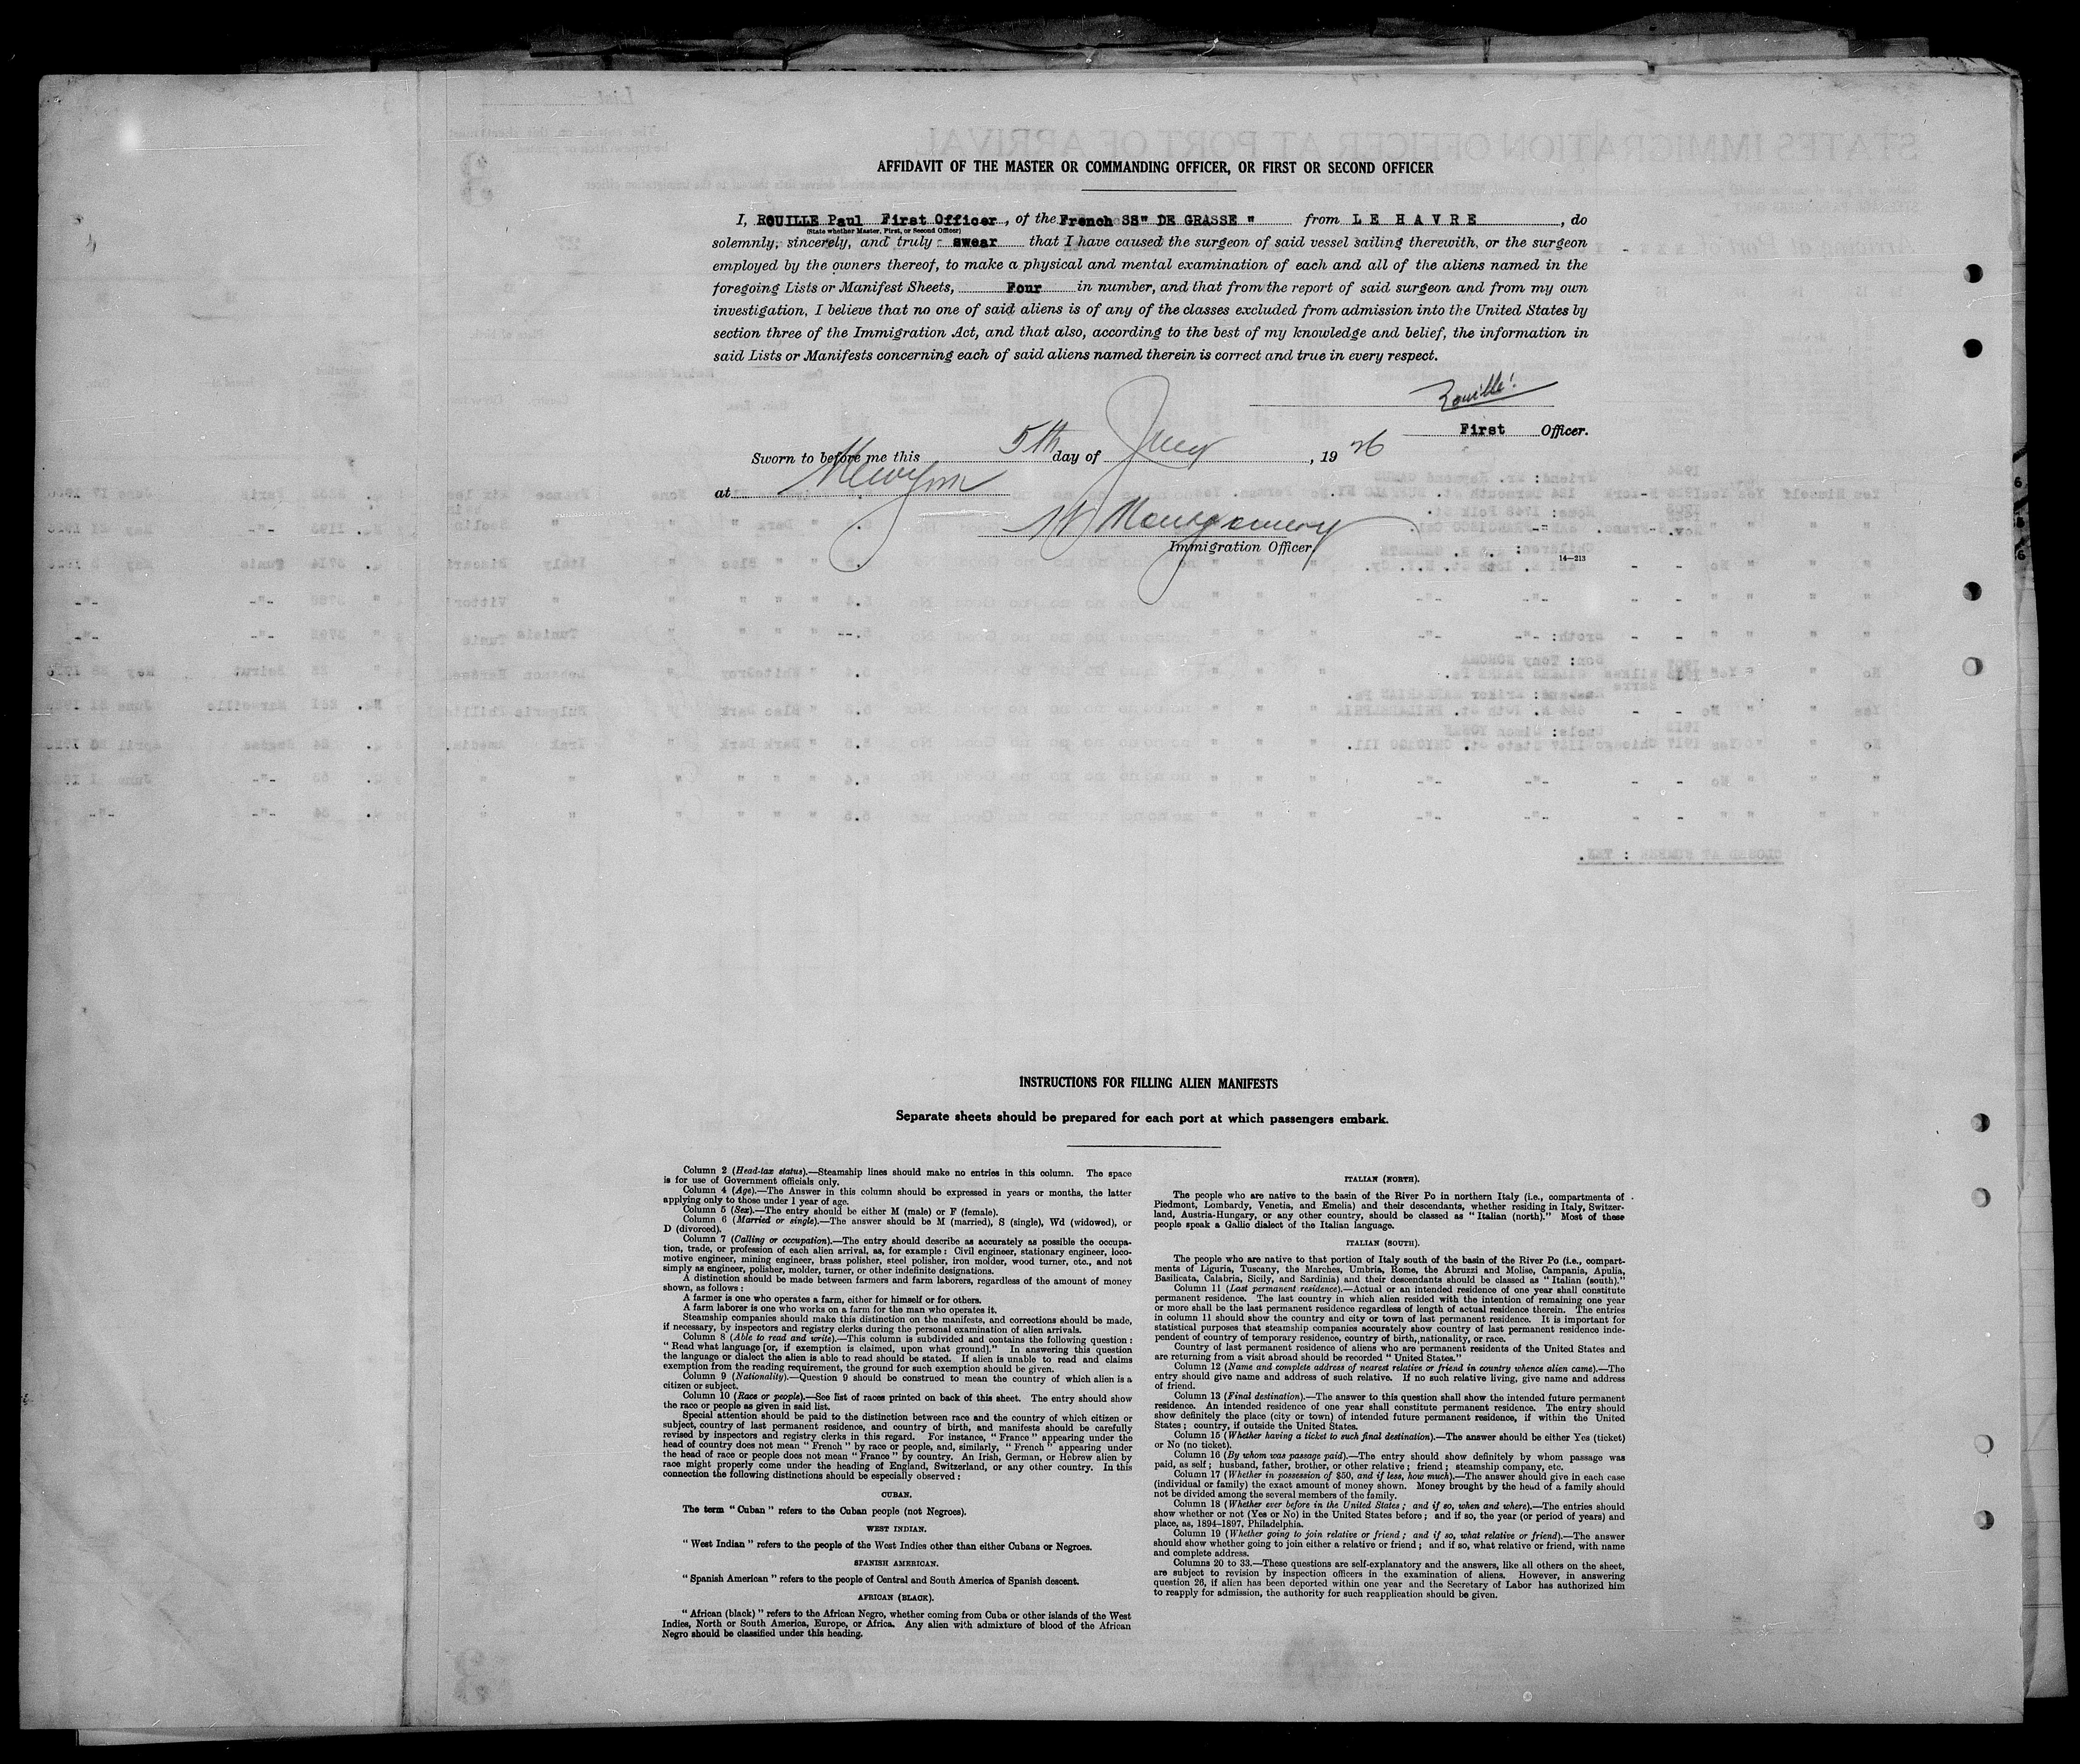 AFFIDAVIT OF THE MASTER OR COMMANDING OFFICER, OR FIRST OR SECOND OFFICER
I, ROUILLE Paul First Officer, of the French SS" DE GRASSE " from L E H A V R E, do
(State whether Master, First, or Second Officer)
solemnly, sincerely, and truly swear that I have caused the surgeon of said vessel sailing therewith, or the surgeon
employed by the owners thereof, to make a physical and mental examination of each and all of the aliens named in the
foregoing Lists or Manifest Sheets, Four in number, and that from the report of said surgeon and from my own
investigation, I believe that no one of said aliens is of any of the classes excluded from admission into the United States by
section three of the Immigration Act, and that also, according to the best of my knowledge and belief, the information in
said Lists or Manifests concerning each of said aliens named therein is correct and true in every respect.
Rouillé
First Officer.
Sworn to before me this 5th day of July, 1926
at New York
Montgomery
Immigration Officer.
14—213
INSTRUCTIONS FOR FILLING ALIEN MANIFESTS
Separate sheets should be prepared for each port at which passengers embark.
Column 2 (Head-tax status).—Steamship lines should make no entries in this column. The space
is for use of Government officials only.
Column 4 (Age).—The Answer in this column should be expressed in years or months, the latter
applying only to those under 1 year of age.
Column 5 (Sex).—The entry should be either M (male) or F (female).
Column 6 (Married or single).—The answer should be M (married), S (single), Wd (widowed), or
D (divorced).
Column 7 (Calling or occupation).—The entry should describe as accurately as possible the occupa-
tion, trade, or profession of each alien arrival, as, for example: Civil engineer, stationary engineer, loco-
motive engineer, mining engineer, brass polisher, steel polisher, iron molder, wood turner, etc., and not
simply as engineer, polisher, molder, turner, or other indefinite designations.
A distinction should be made between farmers and farm laborers, regardless of the amount of money
shown, as follows:
A farmer is one who operates a farm, either for himself or for others.
A farm laborer is one who works on a farm for the man who operates it.
Steamship companies should make this distinction on the manifests, and corrections should be made,
if necessary, by inspectors and registry clerks during the personal examination of alien arrivals.
Column 8 (Able to read and write).—This column is subdivided and contains the following question:
"Read what language [or, if exemption is claimed, upon what ground]." In answering this question
the language or dialect the alien is able to read should be stated. If alien is unable to read and claims
exemption from the reading requirement, the ground for such exemption should be given.
Column 9 (Nationality).—Question 9 should be construed to mean the country of which alien is a
citizen or subject.
Column 10 (Race or people).—See list of races printed on back of this sheet. The entry should show
the race or people as given in said list.
Special attention should be paid to the distinction between race and the country of which citizen or
subject, country of last permanent residence, and country of birth, and manifests should be carefully
revised by inspectors and registry clerks in this regard. For instance, "France" appearing under the
head of country does not mean "French" by race or people, and, similarly, "French" appearing under
the head of race or people does not mean "France" by country. An Irish, German, or Hebrew alien by
race might properly come under the heading of England, Switzerland, or any other country. In this
connection the following distinctions should be especially observed:
CUBAN.
The term "Cuban" refers to the Cuban people (not Negroes).
WEST INDIAN.
"West Indian" refers to the people of the West Indies other than either Cubans or Negroes.
SPANISH AMERICAN.
"Spanish American" refers to the people of Central and South America of Spanish descent.
AFRICAN (BLACK).
"African (black)" refers to the African Negro, whether coming from Cuba or other islands of the West
Indies, North or South America, Europe, or Africa. Any alien with admixture of blood of the African
Negro should be classified under this heading.
ITALIAN (NORTH).
The people who are native to the basin of the River Po in northern Italy (i.e., compartments of
Piedmont, Lombardy, Venetia, and Emelia) and their descendants, whether residing in Italy, Switzer-
land, Austria-Hungary, or any other country, should be classed as "Italian (north)." Most of these
people speak a Gallic dialect of the Italian language.
ITALIAN (SOUTH).
The people who are native to that portion of Italy south of the basin of the River Po (i.e., compart-
ments of Liguria, Tuscany, the Marches, Umbria, Rome, the Abruzzi and Molise, Campania, Apulia,
Basilicata, Calabria, Sicily, and Sardinia) and their descendants should be classed as "Italian (south)."
Column 11 (Last permanent residence).—Actual or an intended residence of one year shall constitute
permanent residence. The last country in which alien resided with the intention of remaining one year
or more shall be the last permanent residence regardless of length of actual residence therein. The entries
in column 11 should show the country and city or town of last permanent residence. It is important for
statistical purposes that steamship companies accurately show country of last permanent residence inde-
pendent of country of temporary residence, country of birth, nationality, or race.
Country of last permanent residence of aliens who are permanent residents of the United States and
are returning from a visit abroad should be recorded "United States."
Column 12 (Name and complete address of nearest relative or friend in country whence alien came).—The
entry should give name and address of such relative. If no such relative living, give name and address
of friend.
Column 13 (Final destination).—The answer to this question shall show the intended future permanent
residence. An intended residence of one year shall constitute permanent residence. The entry should
show definitely the place (city or town) of intended future permanent residence, if within the United
States; country, if outside the United States.
Column 15 (Whether having a ticket to such final destination).—The answer should be either Yes (ticket)
or No (no ticket).
Column 16 (By whom was passage paid).—The entry should show definitely by whom passage was
paid, as self; husband, father, brother, or other relative; friend; steamship company, etc.
Column 17 (Whether in possession of $50, and if less, how much).—The answer should give in each case
(individual or family) the exact amount of money shown. Money brought by the head of a family should
not be divided among the several members of the family.
Column 18 (Whether ever before in the United States; and if so, when and where).—The entries should
show whether or not (Yes or No) in the United States before; and if so, the year (or period of years) and
place, as, 1894-1897, Philadelphia.
Column 19 (Whether going to join relative or friend; and if so, what relative or friend).—The answer
should show whether going to join either a relative or friend; and if so, what relative or friend, with name
and complete address.
Columns 20 to 33.—These questions are self-explanatory and the answers, like all others on the sheet,
are subject to revision by inspection officers in the examination of aliens. However, in answering
question 26, if alien has been deported within one year and the Secretary of Labor has authorized him
to reapply for admission, the authority for such reapplication should be given.